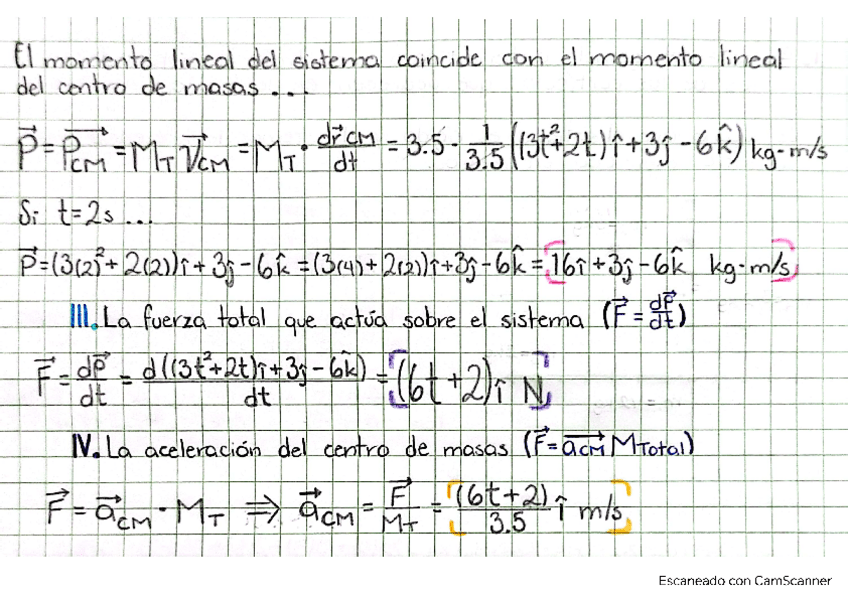 El momento lineal del sistema coincide con el momento lineal
del centro de masas ...
P⃗ = P⃗_CM = M_T V⃗_CM = M_T · dr⃗_CM/dt = 3.5 · 1/3.5 ((3t²+2t)î + 3ĵ - 6k̂) kg·m/s
Si t=2s ...
P⃗ = (3(2)² + 2(2))î + 3ĵ - 6k̂ = (3(4) + 2(2))î + 3ĵ - 6k̂ = 16î + 3ĵ - 6k̂ kg·m/s
III. La fuerza total que actúa sobre el sistema (F⃗ = dP⃗/dt)
F⃗ = dP⃗/dt = d((3t²+2t)î + 3ĵ - 6k̂)/dt = (6t+2)î N
IV. La aceleración del centro de masas (F⃗ = a⃗_CM M_Total)
F⃗ = a⃗_CM · M_T ⇒ a⃗_CM = F⃗/M_T = (6t+2)/3.5 î m/s
Escaneado con CamScanner